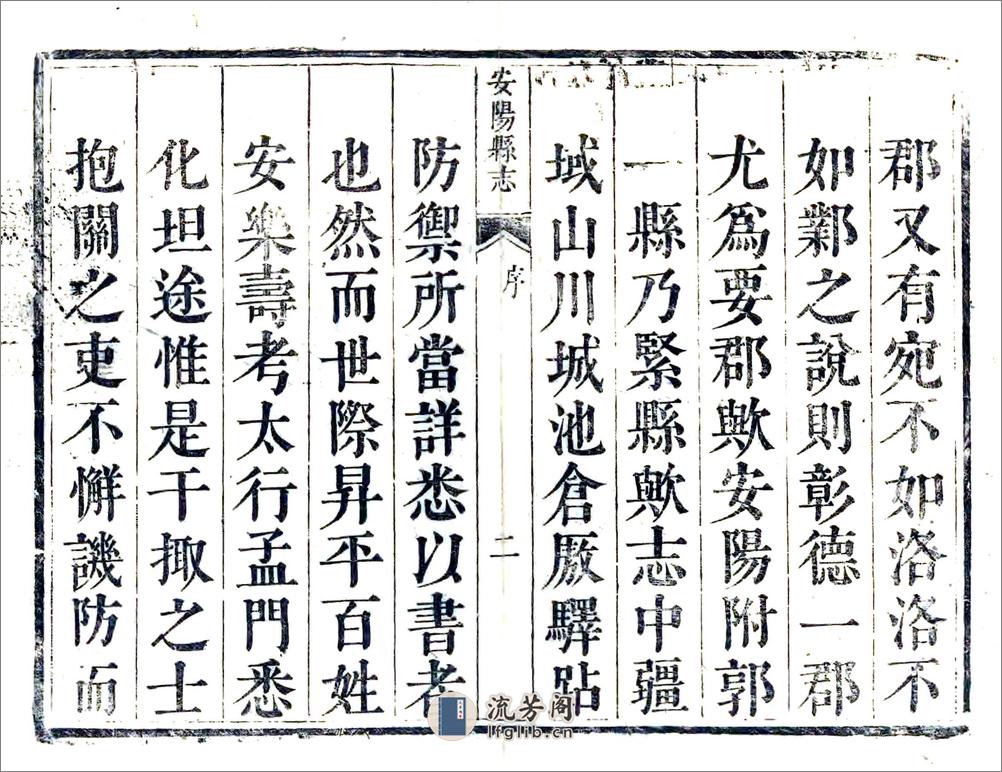 郡又有宛不如洛洛不
如鄴之說則彰德一郡
尤爲要郡歟安陽附郭
一縣乃緊縣歟志中疆
域山川城池倉厫驛站
安陽縣志
序
二
防禦所當詳悉以書者
也然而世際昇平百姓
安樂壽考太行孟門悉
化坦途惟是干掫之士
抱關之吏不懈譏防而
流芳阁
lfglib.cn